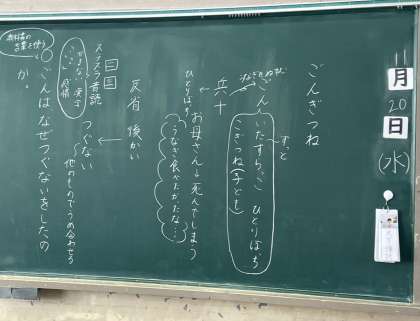 11月20日(水)
ごんぎつね
ずっと
いたずらっこ ひとりぼっち
こぎつね(子ども)
ごん
兵十
お母さん→死んでしまう
ひとりぼっち
うなぎ食べたかったな…
反省 後かい
つぐない
他のものでうめ合わせる
スラスラ音読
ごんはなぜつぐないをしたの
か。
言葉を使う